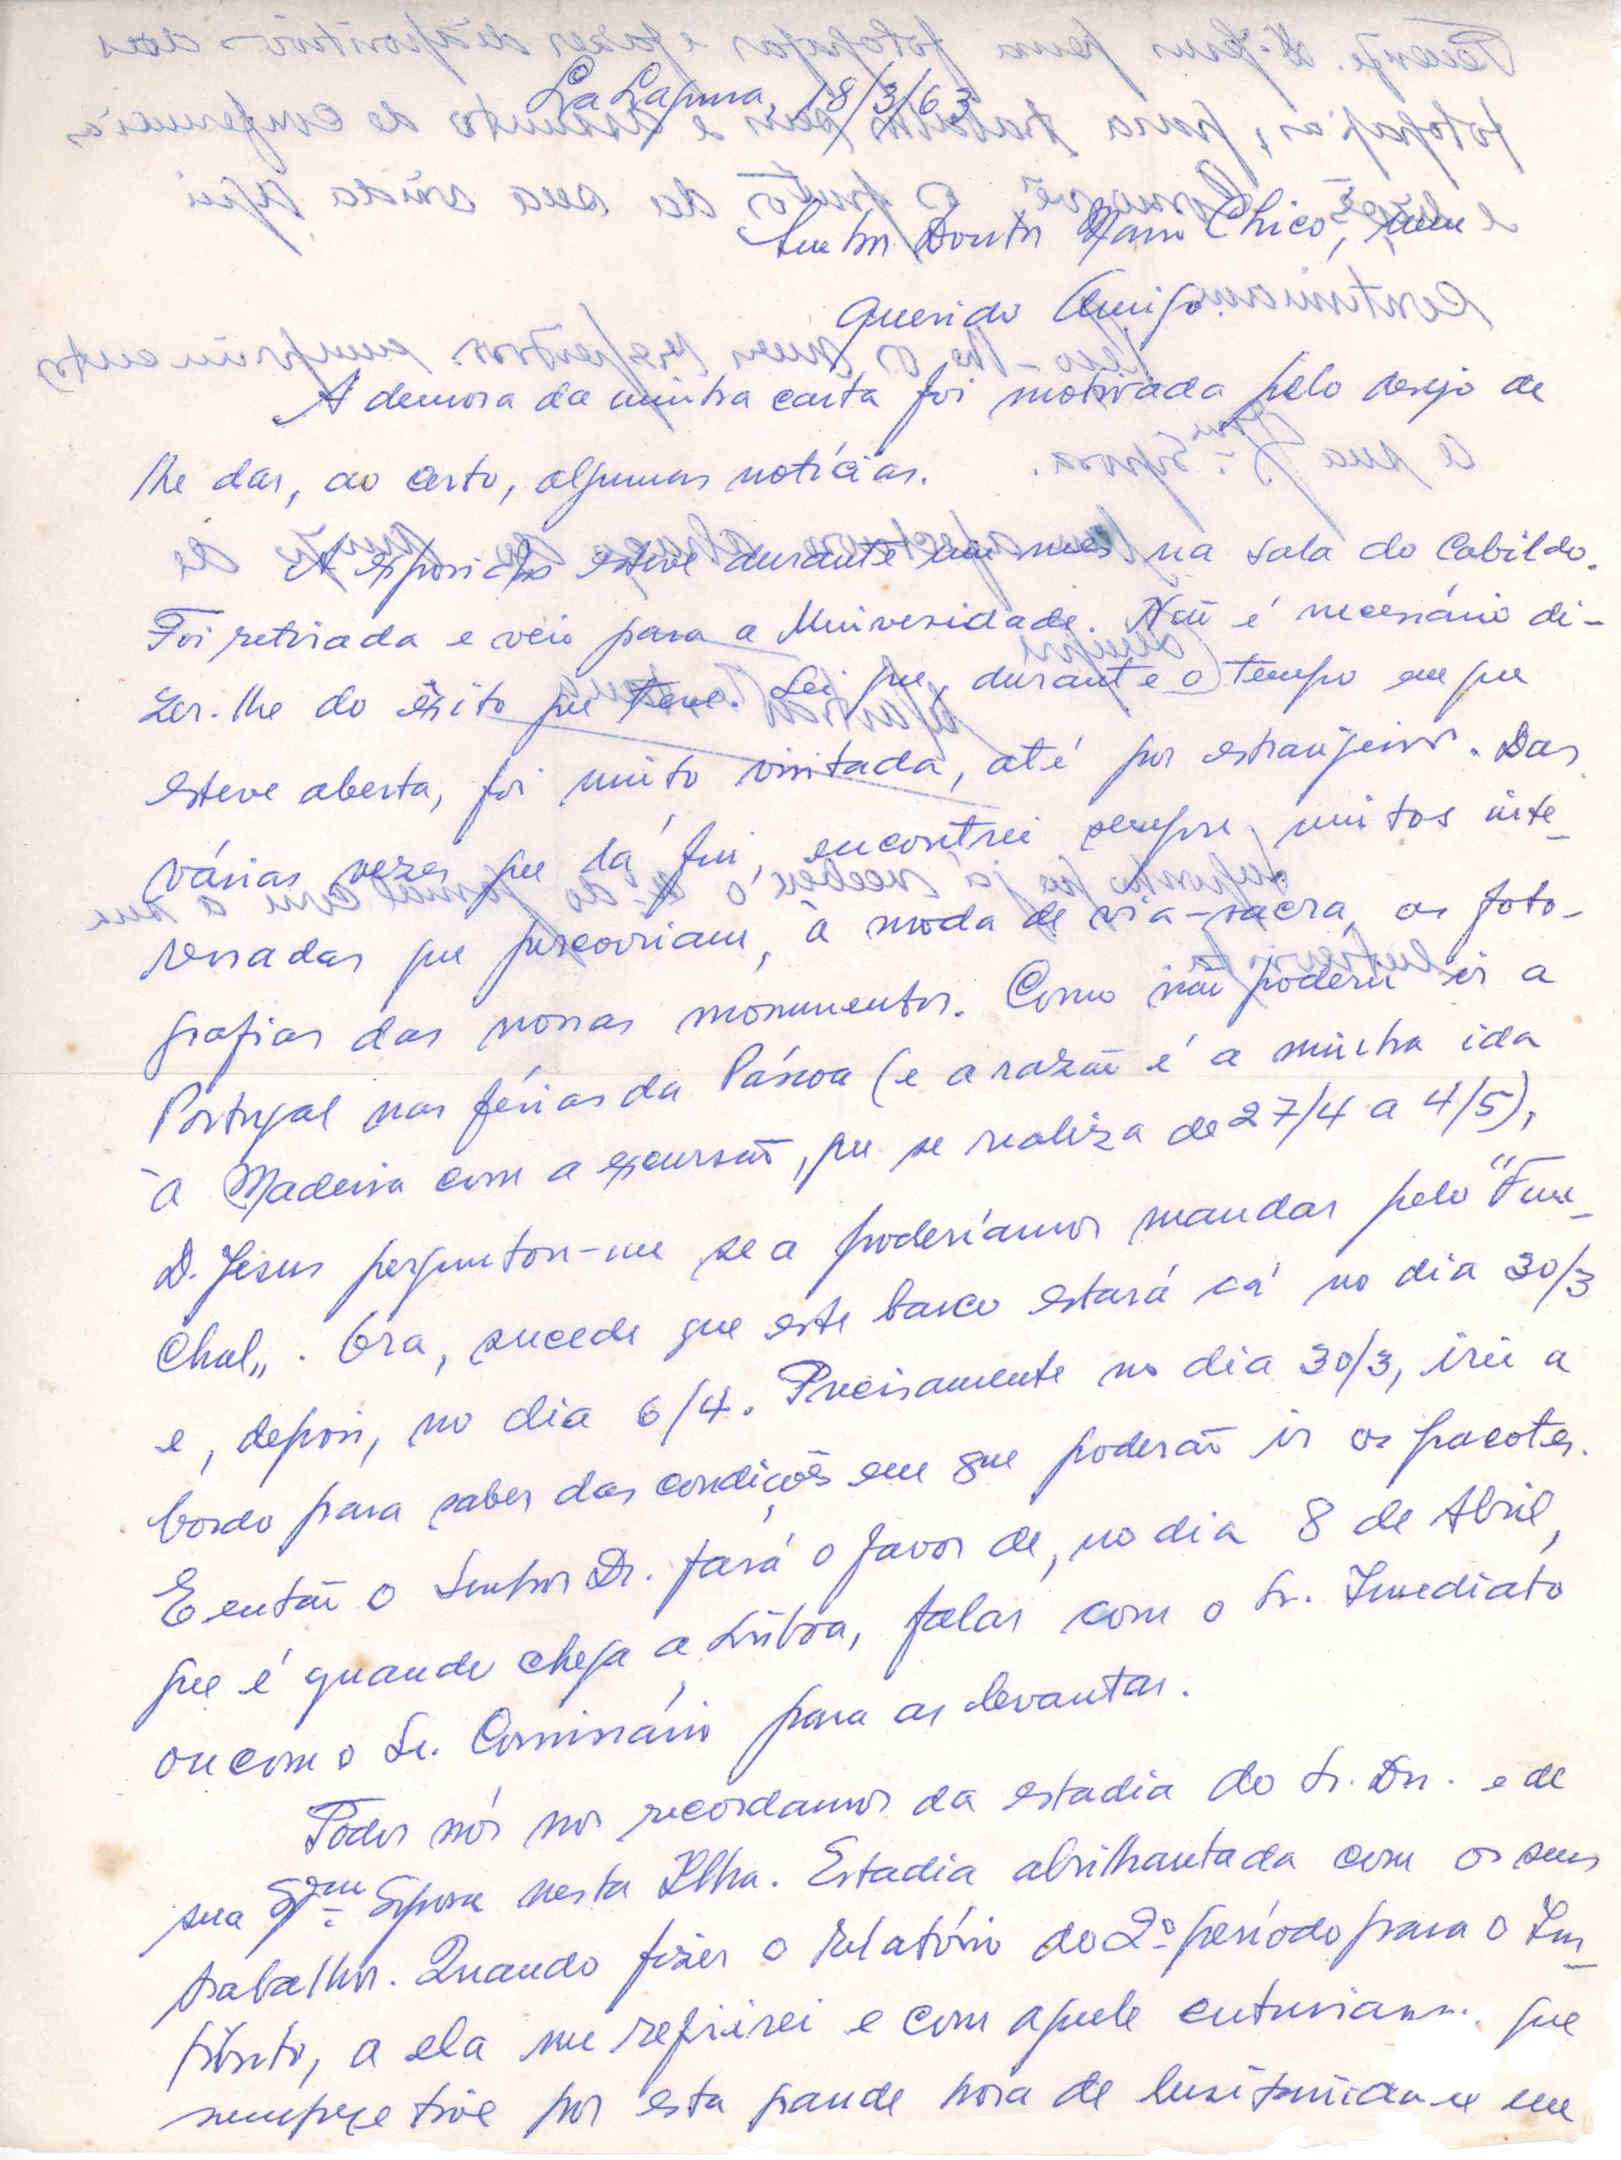 La Laguna, 18/3/63
Senhor Doutor Mário Chicó, meu
querido Amigo.
A demora da minha carta foi motivada pelo desejo de
lhe dar, ao certo, algumas notícias.
A exposição esteve durante um mês na sala do Cabildo.
Foi retirada e veio para a Universidade. Não é necessário di-
zer-lhe do êxito que teve. Sei que, durante o tempo em que
esteve aberta, foi muito visitada, até por estrangeiros. Das
várias vezes que lá fui, encontrei sempre muitos inte-
ressados que percorriam, à moda de via-sacra, as foto-
grafias dos nossos monumentos. Como não poderei ir a
Portugal nas férias da Páscoa (e a razão é a minha ida
à Madeira com a excursão, que se realiza de 27/4 a 4/5),
D. Jesus perguntou-me se a poderíamos mandar pelo "Fun-
chal". Ora, sucede que este barco estará cá no dia 30/3
e, depois, no dia 6/4. Precisamente no dia 30/3, irei a
bordo para saber das condições em que poderão ir os pacotes.
E então o Senhor Dr. fará o favor de, no dia 8 de Abril,
que é quando chega a Lisboa, falar com o Sr. Imediato
ou com o Sr. Comissário para as levantar.
Todos nós nos recordamos da estadia do Sr. Dr. e de
sua Exma Esposa nesta Ilha. Estadia abrilhantada com os seus
trabalhos. Quando fizer o relatório do 2º período para o Ins-
tituto, a ela me referirei e com aquele que
sempre tive por esta grande hora de em